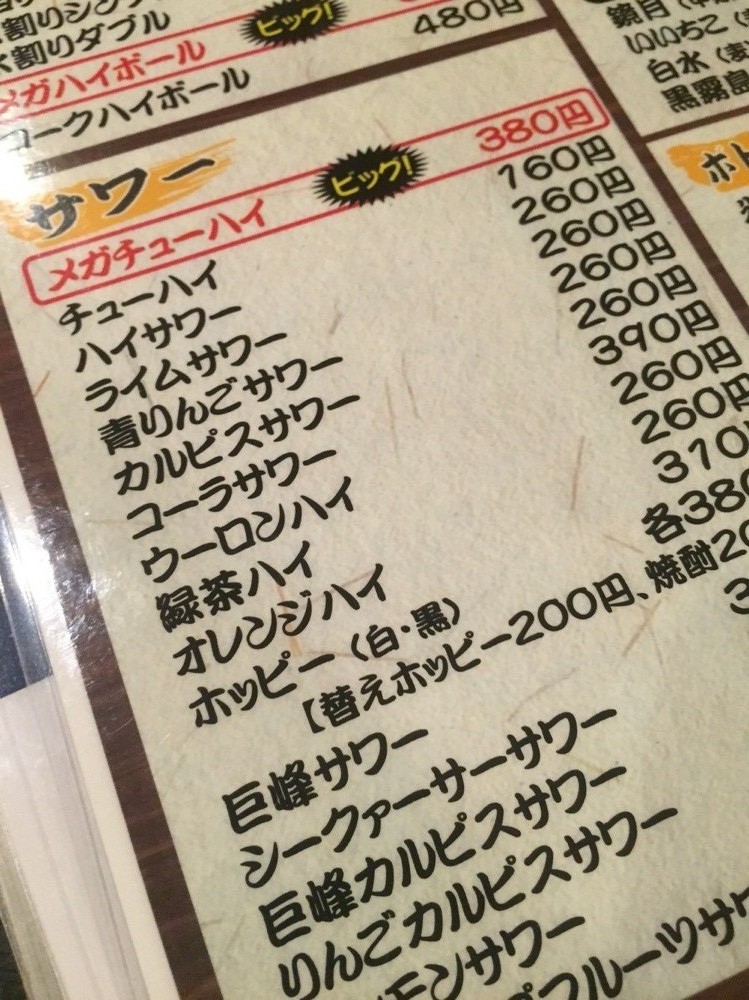 割りダブル
メガハイボール ビッグ!
コークハイボール 480円
サワー
メガチューハイ ビッグ! 380円
チューハイ 160円
ハイサワー 260円
ライムサワー 260円
青りんごサワー 260円
カルピスサワー 260円
コーラサワー 390円
ウーロンハイ 260円
緑茶ハイ 260円
オレンジハイ 310
ホッピー(白・黒) 各380
【替えホッピー200円、焼酎20
巨峰サワー
シークァーサーサワー
巨峰カルピスサワー
りんごカルピスサワー
モンサワー
フルーツサワ
鏡月
いいちこ
白水
黒霧島